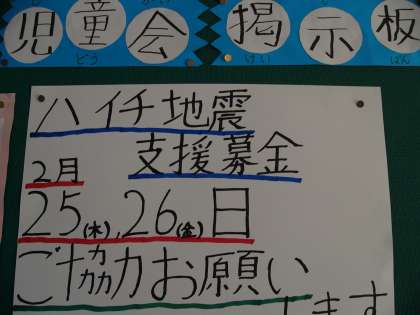 児童会掲示板
どう
けい
ばん
ハイチ地震
支援募金
2月
25(木),26(金)日
ご協力お願い
します